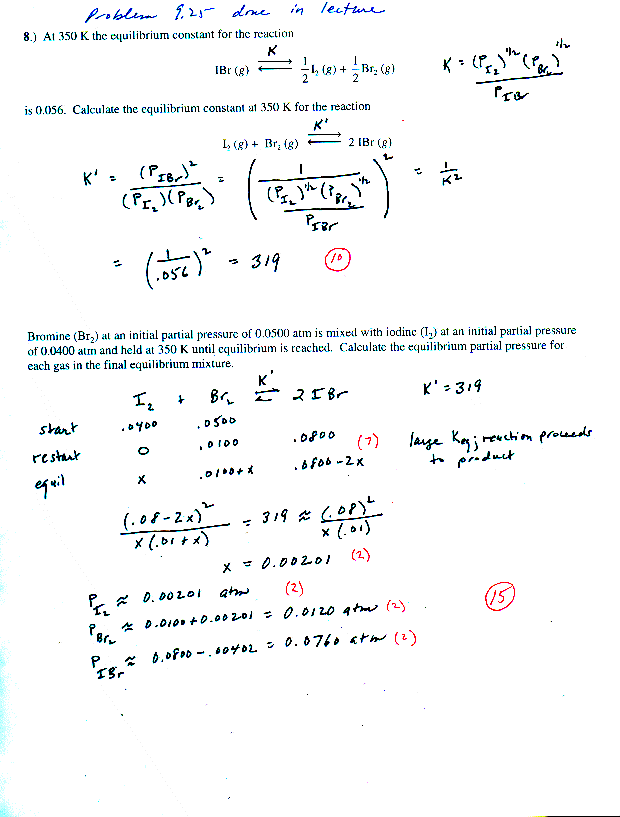 Problem 9.25 done in lecture
8.) At 350 K the equilibrium constant for the reaction
K
IBr (g) ⟷ 1/2 I₂ (g) + 1/2 Br₂ (g)
K = (P_I₂)^1/2 (P_Br₂)^1/2 / P_IBr
is 0.056. Calculate the equilibrium constant at 350 K for the reaction
K'
I₂ (g) + Br₂ (g) ⟷ 2 IBr (g)
K' = (P_IBr)² / (P_I₂)(P_Br₂) = (1 / ((P_I₂)^1/2 (P_Br₂)^1/2 / P_IBr))² = 1/K²
= (1/.056)² = 319 (10)
Bromine (Br₂) at an initial partial pressure of 0.0500 atm is mixed with iodine (I₂) at an initial partial pressure
of 0.0400 atm and held at 350 K until equilibrium is reached. Calculate the equilibrium partial pressure for
each gas in the final equilibrium mixture.
K'
I₂ + Br₂ ⇌ 2 IBr K' = 319
start .0400 .0500
restart 0 .0100 .0800 (7) large Keq; reaction proceeds
equil x .0100+x .0800-2x to product
(.08-2x)² / x(.01+x) = 319 ≈ (.08)² / x(.01)
x = 0.00201 (2)
P_I₂ ≈ 0.00201 atm (2)
P_Br₂ ≈ 0.0100 + 0.00201 = 0.0120 atm (2)
(15)
P_IBr ≈ 0.0800 - .00402 = 0.0760 atm (2)